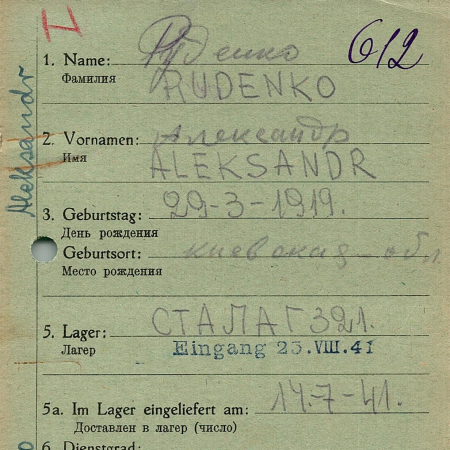 I
612
1. Name: Руденко
Фамилия
RUDENKO
2. Vornamen: Александр
Имя
ALEKSANDR
3. Geburtstag: 29-3-1919.
День рождения
Geburtsort: киевская обл
Место рождения
5. Lager: СТАЛАГ 321.
Лагер
Eingang 25. VIII. 41
5a. Im Lager eingeliefert am: 14.-7-41.
Доставлен в лагер (число)
6. Dienstgrad:
Aleksandr